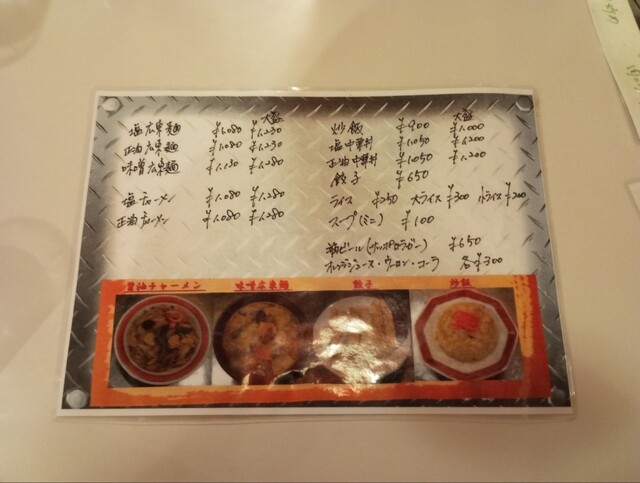 大盛
塩広東麺 ¥1,080 ¥1,230
正油広東麺 ¥1,080 ¥1,230
味噌広東麺 ¥1,130 ¥1,280
塩チャーメン ¥1,080 ¥1,280
正油チャーメン ¥1,080 ¥1,280
大盛
炒飯 ¥900 ¥1,000
塩中華丼 ¥1,050 ¥1,200
正油中華丼 ¥1,050 ¥1,200
餃子 ¥650
ライス ¥250 大ライス ¥300 小ライス ¥200
スープ(ミニ) ¥100
瓶ビール(サッポロラガー) ¥650
オレンジジュース・ウーロン・コーラ 各¥300
醤油チャーメン 味噌広東麺 餃子 炒飯